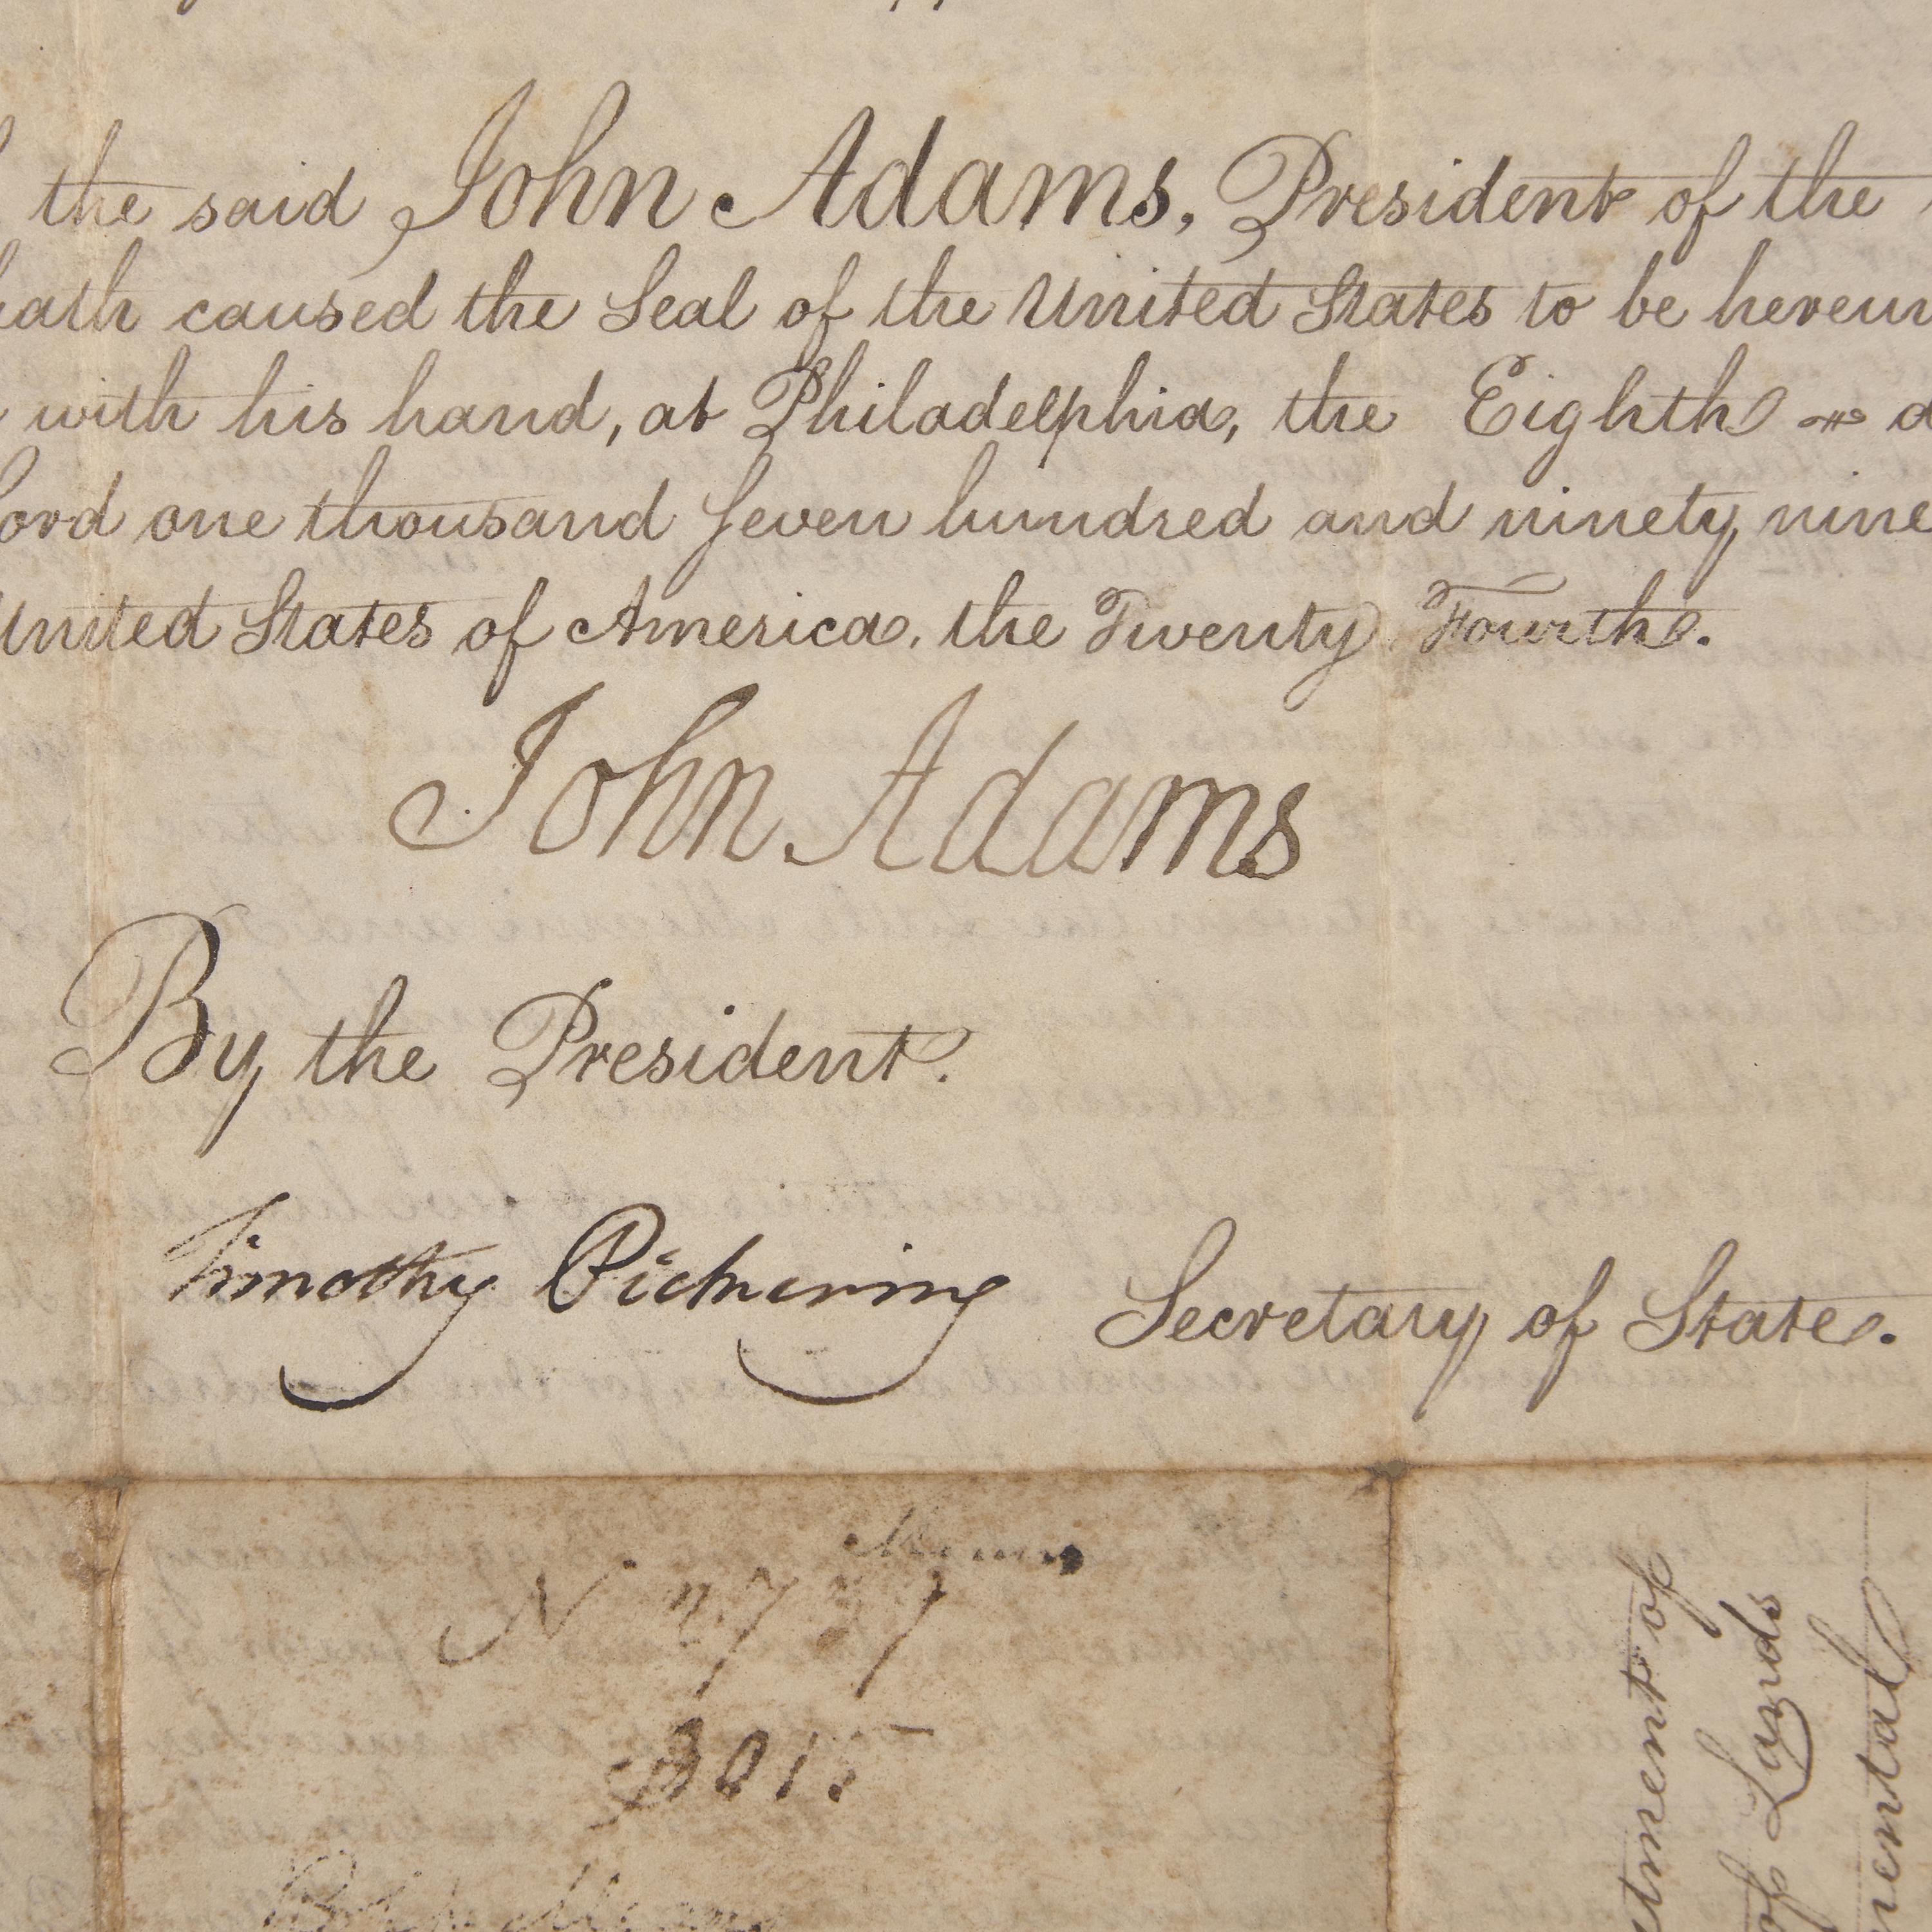 the said John Adams, President of the
hath caused the Seal of the United States to be hereun
with his hand, at Philadelphia, the Eighth
Lord one thousand Seven hundred and ninety nine
United States of America. the Twenty Fourth.
John Adams
By the President.
Timothy Pickering Secretary of State.
N 2737
3015
tment of
of Lands
mental